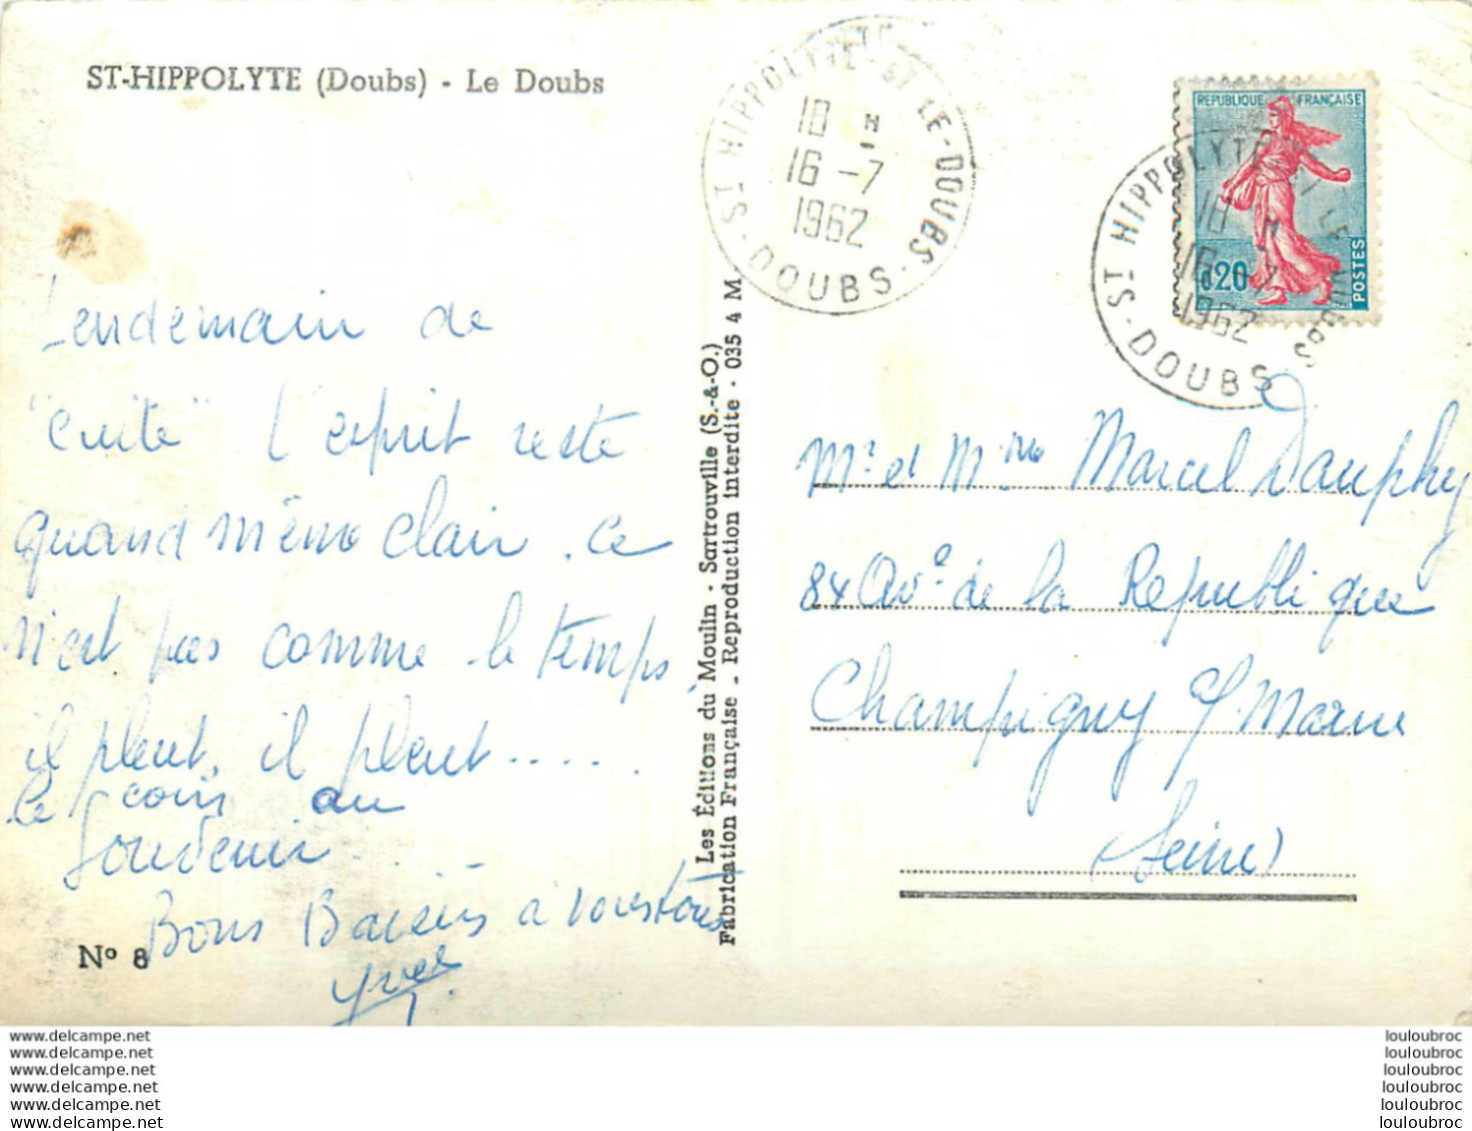 ST-HIPPOLYTE (Doubs) - Le Doubs
Lendemain de
"cuite" l'esprit reste
quand même clair. ce
n'est pas comme le temps,
il pleut, il pleut.....
le coin au
Souvenir...
Bons Baisers à vous tous
Yves
Nº 8
Les Éditions du Moulin - Sartrouville (S.-&-O.)
Fabrication Française - Reproduction interdite - 035 4 M
ST HIPPOLYTE-ST LE-DOUBS
18 H
16 - 7
1962
ST-DOUBS-
REPUBLIQUE FRANÇAISE
0,20
POSTES
ST HIPPOLYTE
18 H
16 - 7
1962
ST-DOUBS
Mr et Mme Marcel Dauphy
84 Ave de la Republique
Champigny s/ Marne
(Seine)
www.delcampe.net
www.delcampe.net
www.delcampe.net
www.delcampe.net
www.delcampe.net
www.delcampe.net
louloubroc
louloubroc
louloubroc
louloubroc
louloubroc
louloubroc